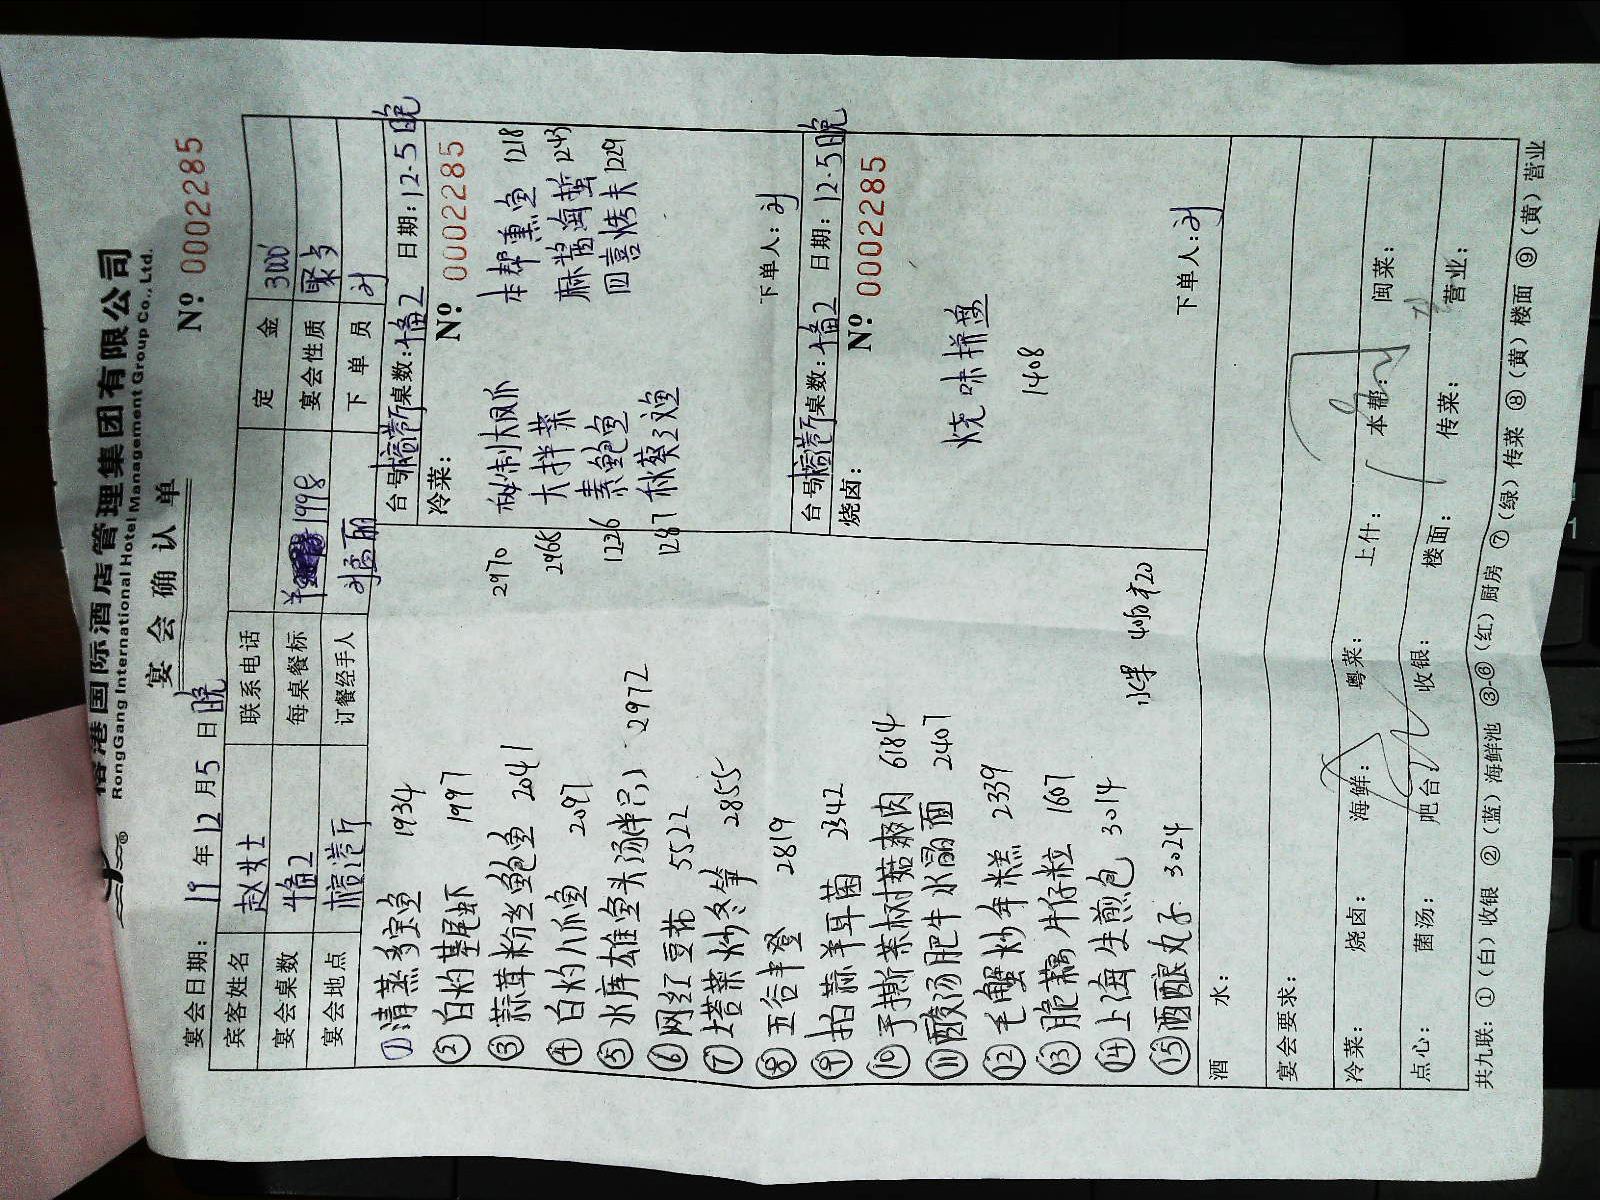 榕港国际酒店管理集团有限公司
RongGang International Hotel Management Group Co., Ltd.
宴会确认单
宴会日期: 19年12月5日晚
№ 0002285
宾客姓名 赵女士 联系电话 定金 3000
宴会桌数 4备2 每桌餐标 ¥1998 宴会性质 聚多
宴会地点 榕港厅 订餐经手人 刘孟丽 下单员 刘
①清蒸多宝鱼 1934
②白灼基尾虾 1997
③蒜茸粉丝鲍鱼 2041
④白灼八爪鱼 2097
⑤水库雄鱼头汤(半只) 2972
⑥网红豆花 5522
⑦塔菜炒冬笋 2855
⑧五谷丰登 2819
⑨拍蒜羊耳菌 2342
⑩手撕茶树菇爽肉 6184
⑪酸汤肥牛水晶面 2407
⑫毛蟹炒年糕 2339
⑬脆藕牛仔粒 1607
⑭上海生煎包 3014
⑮酒酿丸子 3024
水果
台号 榕港厅 桌数: 4备2 日期: 12.5晚
冷菜:
№ 0002285
2970 秘制大凤爪 本帮熏鱼 1218
2968 大拌菜 麻酱海蜇 1243
1226 素鲍鱼 四喜烤夫 1229
1287
下单人: 刘
台号 榕港厅 桌数: 4备2 日期: 12.5晚
烧卤:
№ 0002285
烧味拼盘
1408
下单人: 刘
酒水:
宴会要求:
冷菜: 烧卤: 海鲜: 粤菜: 上什: 本帮: 闽菜:
点心: 菌汤: 吧台: 收银: 楼面: 传菜: 营业:
共九联: ①(白)收银 ②(蓝)海鲜池 ③-⑥(红)厨房 ⑦(绿)传菜 ⑧(黄)楼面 ⑨(黄)营业